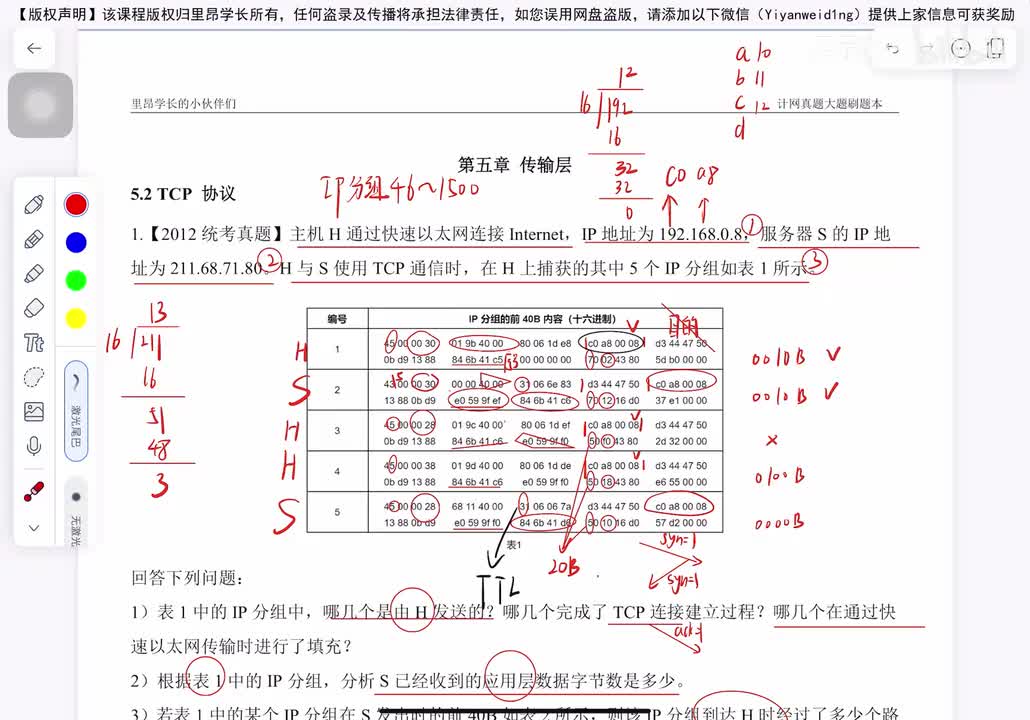 【版权声明】该课程版权归里昂学长所有，任何盗录及传播将承担法律责任，如您误用网盘盗版，请添加以下微信（Yiyanweid1ng）提供上家信息可获奖励
a 10
b 11
c 12
d
12
16 192
16
32
32
0
里昂学长的小伙伴们
计网真题大题刷题本
第五章 传输层
5.2 TCP 协议
IP分组46~1500
C0 a8
1.【2012 统考真题】主机 H 通过快速以太网连接 Internet，IP 地址为 192.168.0.8，服务器 S 的 IP 地
址为 211.68.71.80。H 与 S 使用 TCP 通信时，在 H 上捕获的其中 5 个 IP 分组如表 1 所示。
① ② ③
13
16 211
16
51
48
3
编号 IP 分组的前 40B 内容（十六进制） 目的
H 1 45 00 00 30 01 9b 40 00 80 06 1d e8 c0 a8 00 08 d3 44 47 50
0b d9 13 88 84 6b 41 c5 00 00 00 00 70 02 43 80 5d b0 00 00
0010B ✓
S 2 43 00 00 30 00 00 40 00 31 06 6e 83 d3 44 47 50 c0 a8 00 08
13 88 0b d9 e0 59 9f ef 84 6b 41 c6 70 12 16 d0 37 e1 00 00
0010B ✓
H 3 45 00 00 28 01 9c 40 00 80 06 1d ef c0 a8 00 08 d3 44 47 50
0b d9 13 88 84 6b 41 c6 e0 59 9f f0 50 10 43 80 2d 32 00 00
×
H 4 45 00 00 38 01 9d 40 00 80 06 1d de c0 a8 00 08 d3 44 47 50
0b d9 13 88 84 6b 41 c6 e0 59 9f f0 50 18 43 80 e6 55 00 00
0100B
S 5 45 00 00 28 68 11 40 00 31 06 06 7a d3 44 47 50 c0 a8 00 08
13 88 0b d9 e0 59 9f f0 84 6b 41 d6 50 10 16 d0 57 d2 00 00
0000B
表1
20B
TTL
syn=1
syn=1
ack=1
回答下列问题：
1）表 1 中的 IP 分组中，哪几个是由 H 发送的？哪几个完成了 TCP 连接建立过程？哪几个在通过快
速以太网传输时进行了填充？
2）根据表 1 中的 IP 分组，分析 S 已经收到的应用层数据字节数是多少。
3）若表 1 中的某个 IP 分组在 S 发出时的前 40B 如表 2 所示，则该 IP 分组到达 H 时经过了多少个路
Tt
激光尾巴
无激光